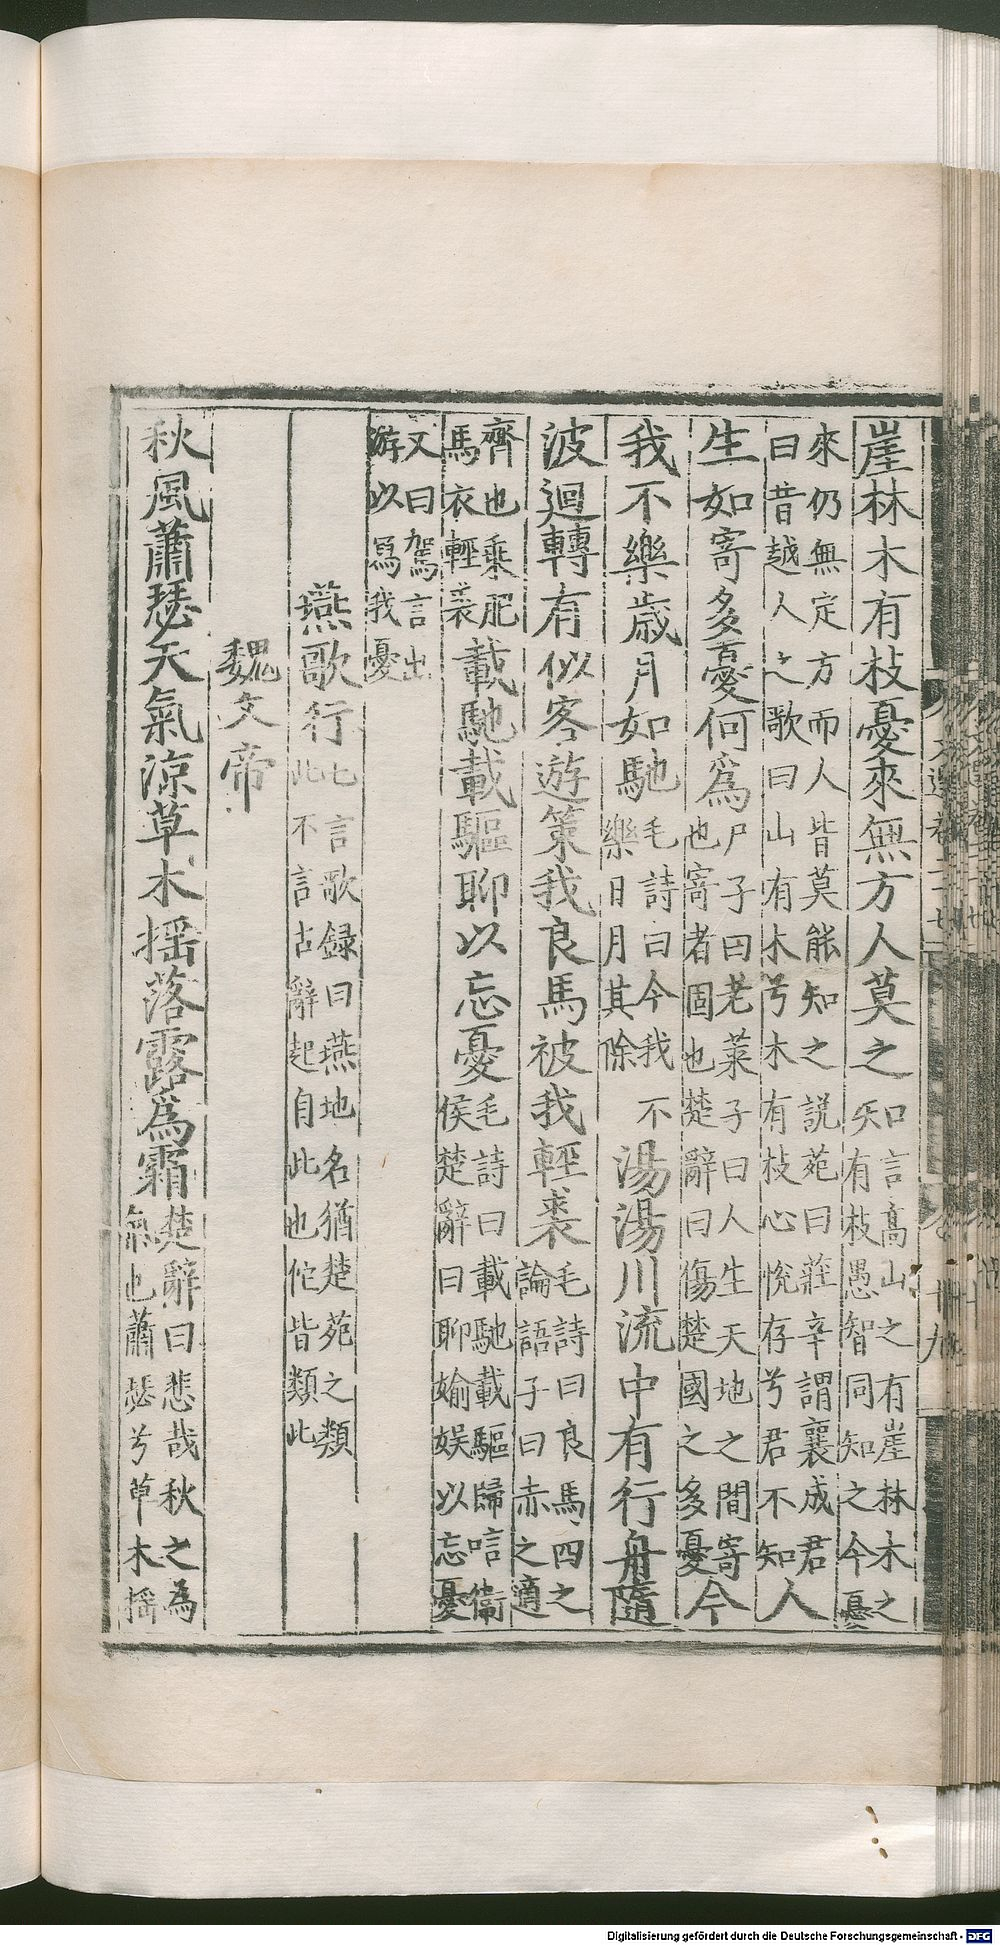 崖林木有枝憂來無方人莫之知言高山之有崖林木之有枝愚智同知之今憂
來仍無定方而人皆莫能知之說苑曰莊辛謂襄成君曰昔越人之歌曰山有木兮木有枝心悅存兮君不知人
生如寄多憂何爲尸子曰老萊子曰人生天地之間寄也寄者固也楚辭曰傷楚國之多憂今
我不樂歲月如馳毛詩曰今我不樂日月其除湯湯川流中有行舟隨
波迴轉有似客遊策我良馬被我輕裘毛詩曰良馬四之論語子曰赤之適
齊也乘肥馬衣輕裘載馳載驅聊以忘憂毛詩曰載馳載驅歸唁衞侯楚辭曰聊媮娛以忘憂
又曰駕言出游以寫我憂
燕歌行七言歌録曰燕地名猶楚苑之類此不言古辭起自此也佗皆類此
魏文帝
秋風蕭瑟天氣涼草木揺落露爲霜楚辭曰悲哉秋之為氣也蕭瑟兮草木揺
Digitalisierung gefördert durch die Deutsche Forschungsgemeinschaft - DFG